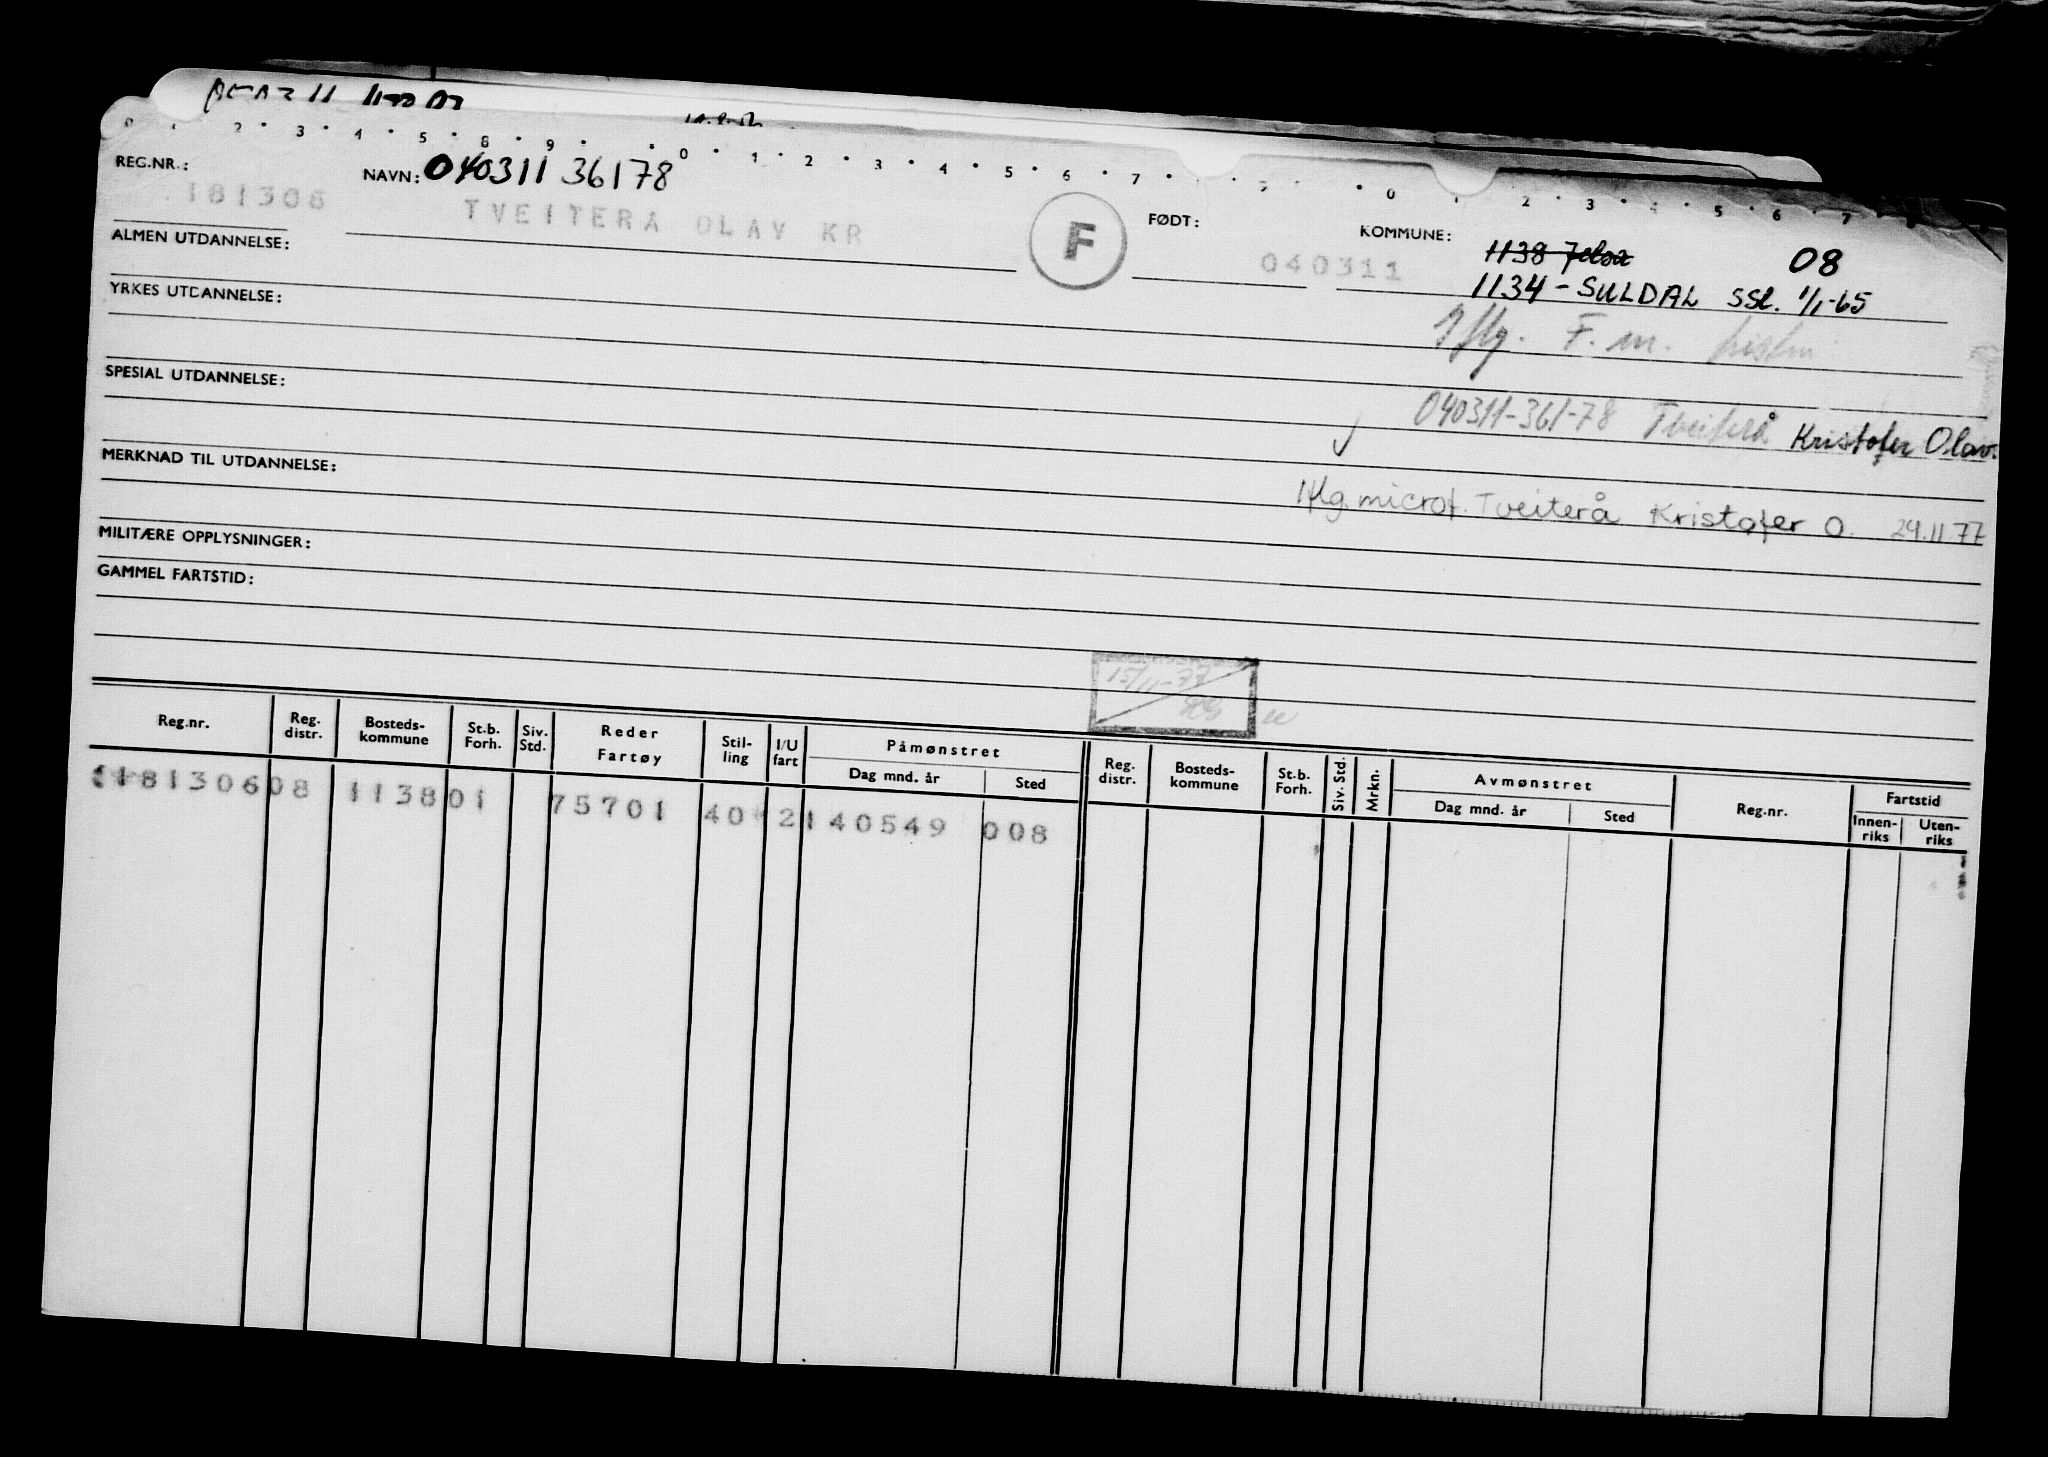 0 1 2 3 4 5 8 9 0 1 2 3 4 5 6 7 0 1 2 3 4 5 6 7
REG.NR.: NAVN: 040311 36178
181306 TVEITERÅ OLAV KR F FØDT: 040311 KOMMUNE: 1138 Jelsa 08
1134 - SULDAL SSL. 1/1-65
ALMEN UTDANNELSE:
YRKES UTDANNELSE:
Iflg. F.m.
SPESIAL UTDANNELSE:
040311-361-78 Tveiterå Kristofer Olav.
MERKNAD TIL UTDANNELSE:
Iflg. microf. Tveiterå Kristofer O. 24.11.77
MILITÆRE OPPLYSNINGER:
GAMMEL FARTSTID:
15/11-77
Reg.nr. Reg. distr. Bosteds-kommune St.b. Forh. Siv. Std. Reder Fartøy Stil-ling I/U fart Påmønstret Dag mnd. år Sted Reg. distr. Bosteds-kommune St.b. Forh. Siv. Std. Mrkn. Avmønstret Dag mnd. år Sted Reg.nr. Fartstid Innen-riks Uten-riks
181306 08 1138 01 75701 40 2 140549 008